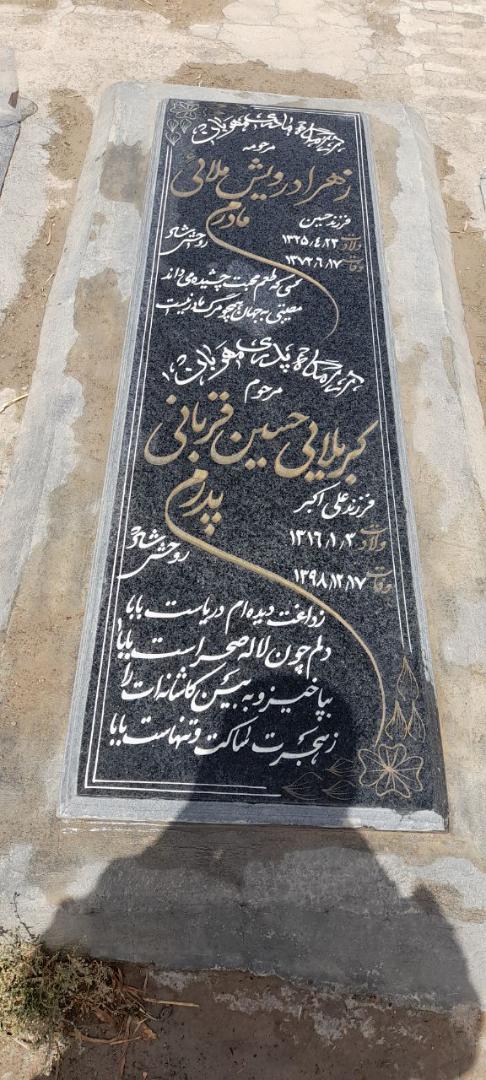 آرامگاه مادری مهربان
مرحومه
زهرا درویش ملائی
مادرم
فرزند حسین
ولادت ۱۳۲۵/۴/۲۳
روحش شاد
وفات ۱۳۷۲/۶/۱۷
کسی که طعم محبت چشیده می داند
مصیبتی به جهان همچو مرگ مادر نیست
آرامگاه پدری مهربان
مرحوم
کربلایی حسین قربانی
پدرم
فرزند علی اکبر
ولادت ۱۳۱۶/۱/۲
روحش شاد
وفات ۱۳۹۸/۱۲/۱۷
زداغت دیده ام دریاست بابا
دلم چون لاله صحراست بابا
بپا خیز و به بین کاشانه ات را
زهجرت ساکت و تنهاست بابا